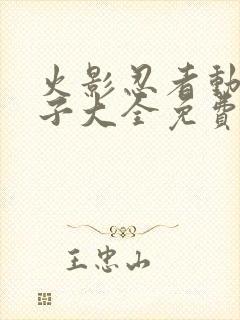 火影忍者動
子大全免費
王忠山